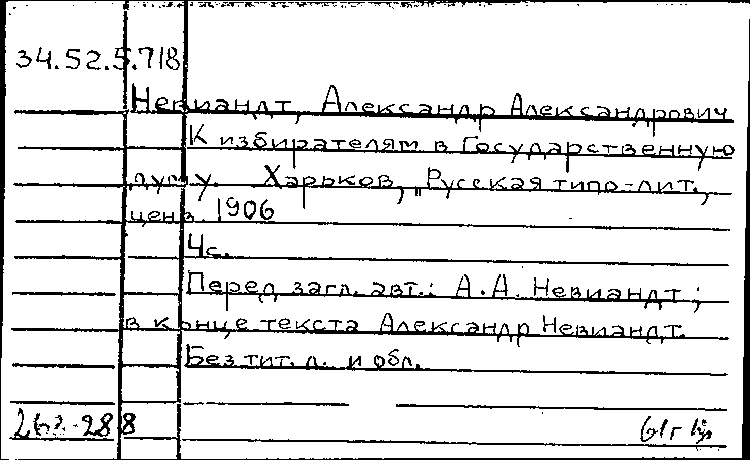 34.52.5.718
Невиандт, Александр Александрович
К избирателям в Государственную
думу. Харьков, „Русская типо-лит.,
ценз. 1906
4с.
Перед загл. авт.: А.А. Невиандт;
в конце текста Александр Невиандт.
Без тит. л. и обл.
288